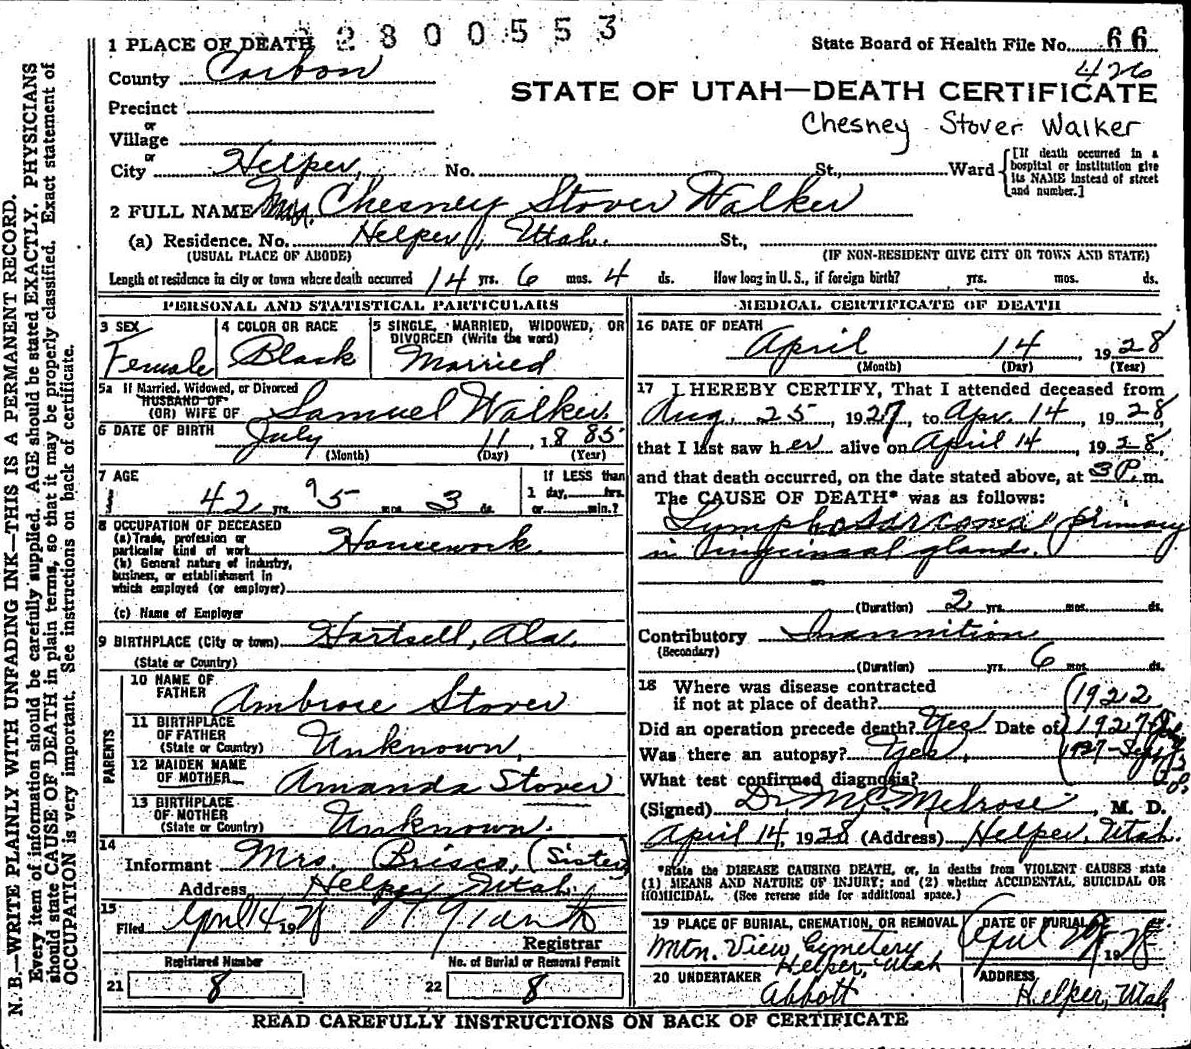 2800553
1 PLACE OF DEATH
State Board of Health File No. 66
426
County Carbon
STATE OF UTAH—DEATH CERTIFICATE
Precinct
or
Village
Chesney Stover Walker
or
City Helper, No. St., Ward
[If death occurred in a hospital or institution give its NAME instead of street and number.]
2 FULL NAME Mrs. Chesney Stover Walker
(a) Residence. No. Helper, Utah. St.,
(USUAL PLACE OF ABODE) (IF NON-RESIDENT GIVE CITY OR TOWN AND STATE)
Length of residence in city or town where death occurred 14 yrs. 6 mos. 4 ds. How long in U.S., if foreign birth? yrs. mos. ds.
PERSONAL AND STATISTICAL PARTICULARS
3 SEX
Female
4 COLOR OR RACE
Black
5 SINGLE, MARRIED, WIDOWED, OR DIVORCED (Write the word)
Married
5a If Married, Widowed, or Divorced
HUSBAND OF
(OR) WIFE OF Samuel Walker.
6 DATE OF BIRTH July 11, 1885
(Month) (Day) (Year)
7 AGE
42 yrs. 9 mos. 3 ds.
If LESS than
1 day, hrs.
or min.?
8 OCCUPATION OF DECEASED
(a) Trade, profession or
particular kind of work Housework.
(b) General nature of industry,
business, or establishment in
which employed (or employer)
(c) Name of Employer
9 BIRTHPLACE (City or town) Hartsell, Ala.
(State or Country)
PARENTS
10 NAME OF
FATHER Ambrose Stover
11 BIRTHPLACE
OF FATHER
(State or Country) Unknown
12 MAIDEN NAME
OF MOTHER Amanda Stover
13 BIRTHPLACE
OF MOTHER
(State or Country) Unknown.
14
Informant Mrs. Brisco, (Sister)
Address Helper, Utah.
15
Filed April 14, 1928
Registrar
Registered Number
21 8
No. of Burial or Removal Permit
22 8
MEDICAL CERTIFICATE OF DEATH
16 DATE OF DEATH
April 14, 1928
(Month) (Day) (Year)
17 I HEREBY CERTIFY, That I attended deceased from
Aug. 25, 1927, to Apr. 14, 1928,
that I last saw her alive on April 14, 1928,
and that death occurred, on the date stated above, at 3 P.m.
The CAUSE OF DEATH* was as follows:
Lymphosarcoma primary
in inguinal gland.
(Duration) 2 yrs. mos. ds.
Contributory Inannition
(Secondary)
(Duration) yrs. 6 mos. ds.
18 Where was disease contracted
if not at place of death?
1922
Did an operation precede death? Yes Date of 1927
Was there an autopsy? Yes 1927 - Sept
What test confirmed diagnosis?
(Signed) Dr. Mc. Melrose, M. D.
April 14, 1928 (Address) Helper, Utah.
*State the DISEASE CAUSING DEATH, or, in deaths from VIOLENT CAUSES state
(1) MEANS AND NATURE OF INJURY; and (2) whether ACCIDENTAL, SUICIDAL OR
HOMICIDAL. (See reverse side for additional space.)
19 PLACE OF BURIAL, CREMATION, OR REMOVAL
Mtn. View Cemetery
Helper, Utah
DATE OF BURIAL
April 1928
20 UNDERTAKER
Abbott
ADDRESS
Helper, Utah
READ CAREFULLY INSTRUCTIONS ON BACK OF CERTIFICATE
N. B.—WRITE PLAINLY WITH UNFADING INK—THIS IS A PERMANENT RECORD.
Every item of information should be carefully supplied. AGE should be stated EXACTLY. PHYSICIANS
should state CAUSE OF DEATH in plain terms, so that it may be properly classified. Exact statement of
OCCUPATION is very important. See instructions on back of certificate.